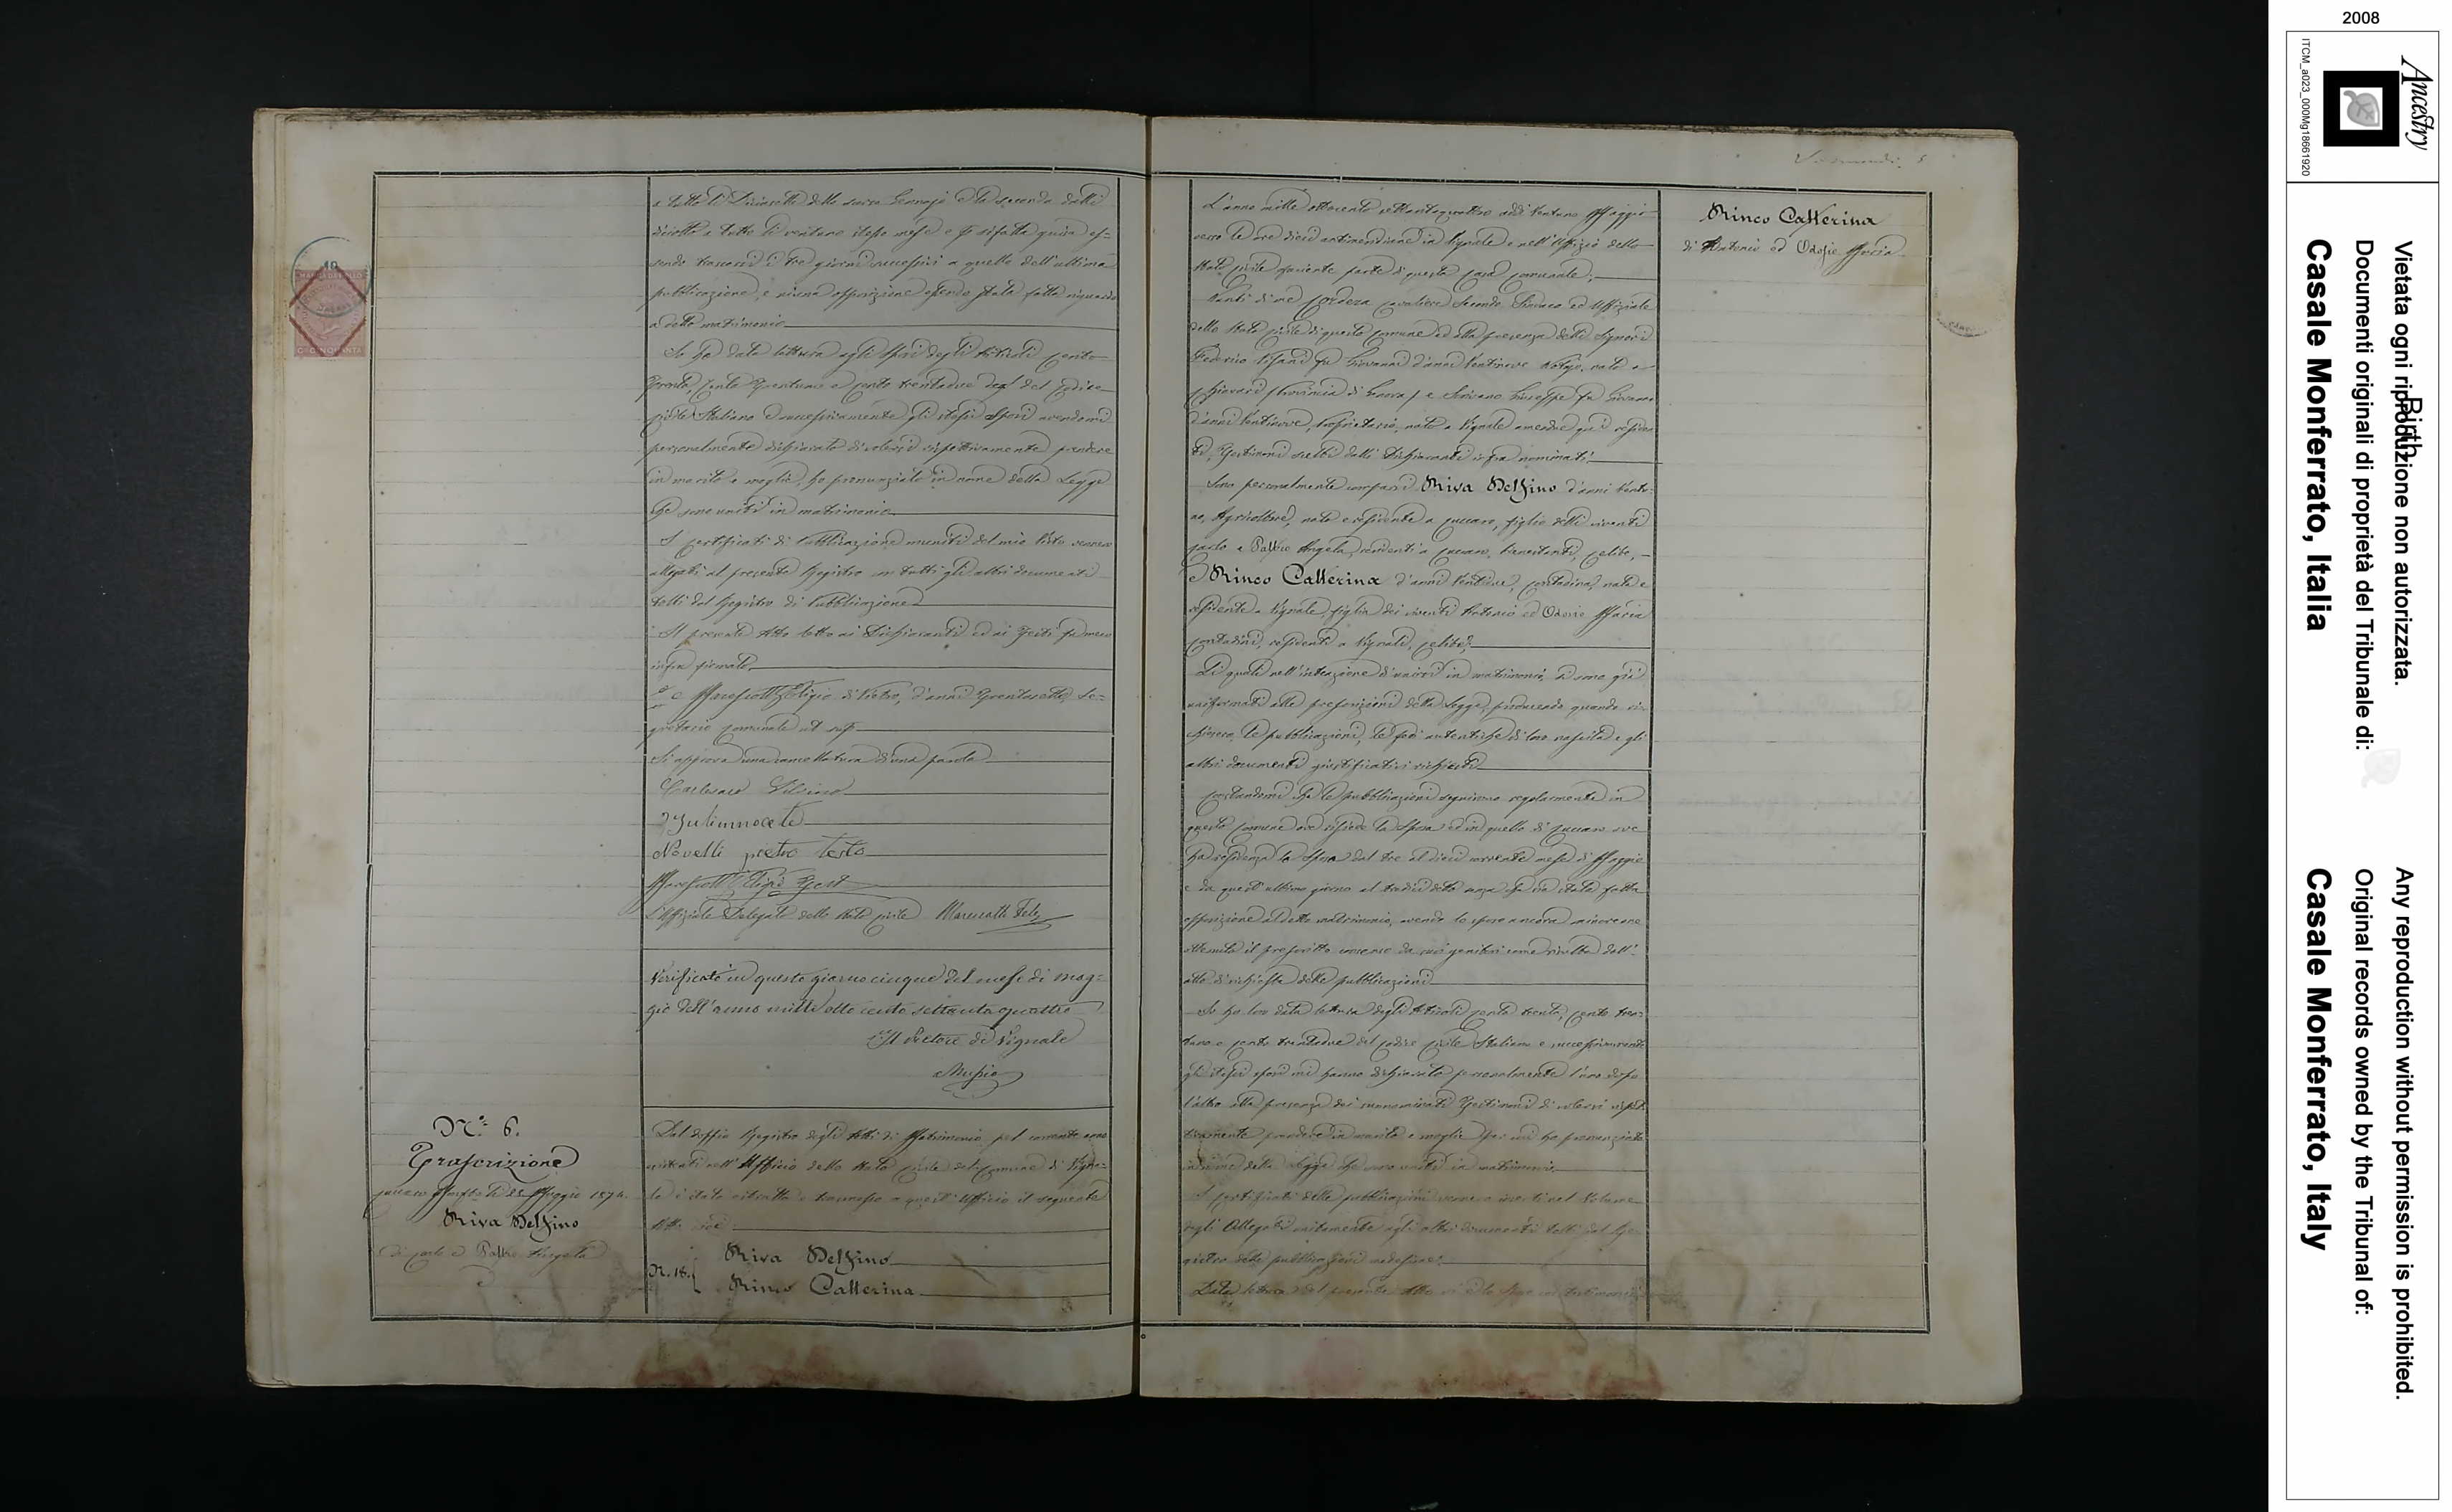 e tutto li Diciasette dello scorso Gennajo e la seconda dalli
dieciotto a tutto li ventuno stesso mese e per siffatta guisa es=
sendo trascorsi i tre giorni successivi a quello dell'ultima
pubblicazione, e niuna opposizione essendo stata fatta riguardo
a detto matrimonio
Io ho dato lettura agli sposi degli Articoli cento
trenta, cento trentuno e cento trentadue del Codice
Civile Italiano e successivamente gli stessi sposi avendomi
personalmente dichiarato di volersi rispettivamente prendere
in marito e moglie, ho pronunziato in nome della Legge
che sono uniti in matrimonio
I certificati di Pubblicazione muniti del mio Visto vennero
allegati al presente Registro con tutti gli altri documenti
tolti dal Registro di Pubblicazione
Il presente Atto letto ai Dichiaranti ed ai Testi fu meco
infra firmato
Eligio di Pietro, d'anni trentasette, Se=
gretario comunale
Si approva una cancellatura d'una parola
Novelli pietro Testo
L'Uffiziale Delegato dello Stato Civile
Verificato in questo giorno cinque del mese di mag=
gio dell'anno mille otto cento settanta quattro
Il Pretore di Vignale
N.° 6.
Trascrizione
Maggio 1874.
Riva Delfino
di Carlo e Angela
Dal doppio Registro degli Atti di Matrimonio pel corrente anno
esistenti nell'Ufficio dello Stato Civile del Comune di Vigna=
le è stato estratto e trasmesso a quest'Ufficio il seguente
Atto cioè:
N. 16. Riva Delfino
Rinco Catterina
L'anno mille ottocento settantaquattro addì Ventuno Maggio
verso le ore dieci antimeridiane in Vignale e nell'Uffizio dello
Stato Civile facente parte di questa Casa Comunale;
Avanti di me Cordera Cavaliere Secondo Sindaco ed Uffiziale
dello Stato Civile di questo Comune ed alla presenza delli Signori
Federico fu Giovanni d'anni Ventinove, nato a
Chiavari (Provincia di Genova) e Giuseppe fu Giovanni
d'anni Ventinove, Proprietario, nato a Vignale amendue qui residen
ti, Testimoni scelti dalli Dichiaranti infra nominati.
Sono personalmente comparsi Riva Delfino d'anni Ventu=
no, Agricoltore, nato e residente a Cuccaro, figlio delli viventi
Carlo e Angela, residenti a Cuccaro, benestanti, celibe,
e Rinco Catterina d'anni Ventidue, contadina, nata e
residente a Vignale, figlia dei viventi Antonio ed Odasio Maria
contadini, residenti a Vignale,
Li quali nell'intenzione d'unirsi in matrimonio, si sono già
uniformati alle prescrizioni della Legge, producendo quando ri=
chiesero le pubblicazioni, le fedi autentiche di loro nascita e gli
altri documenti giustificativi richiesti
Constandomi che le pubblicazioni seguirono regolarmente in
questo Comune ove risiede la Sposa ed in quello di Cuccaro ove
ha residenza lo Sposo dal tre al dieci corrente mese di Maggio
e da quest'ultimo giorno al tredici detto senza che sia stata fatta
opposizione al detto matrimonio, avendo lo sposo ancora minorenne
ottenuto il prescritto consenso da suoi genitori come risulta dall'=
atto di richiesta delle pubblicazioni
Io ho loro data lettura degli Articoli cento trenta, cento tren=
tuno e cento trentadue del Codice Civile Italiano e successivamente
gli stessi sposi mi hanno dichiarato personalmente l'uno dopo
l'altro alla presenza dei sunnominati Testimoni di volersi rispet=
tivamente prendere in marito e moglie per cui ho pronunziato
in nome della Legge che sono uniti in matrimonio
I certificati delle pubblicazioni vennero inserti nel Volume
degli Allegati unitamente agli altri documenti tolti dal Re=
gistro delle pubblicazioni
Data lettura del presente Atto
Rinco Catterina
di Antonio ed Odasio Maria
2008
Ancestry
ITCM_a023_000Mg18661920
Birth
Vietata ogni riproduzione non autorizzata.
Documenti originali di proprietà del Tribunale di:
Casale Monferrato, Italia
Any reproduction without permission is prohibited.
Original records owned by the Tribunal of:
Casale Monferrato, Italy